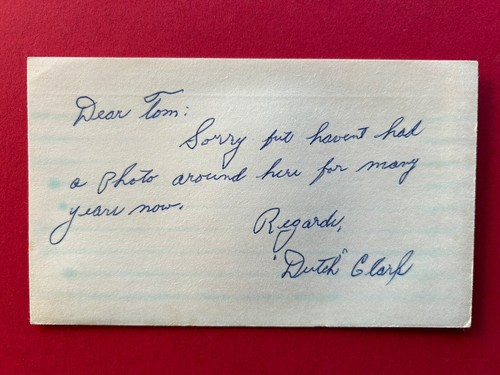 Dear Tom:
Sorry but havent had
a photo around here for many
years now.
Regards,
"Dutch" Clark